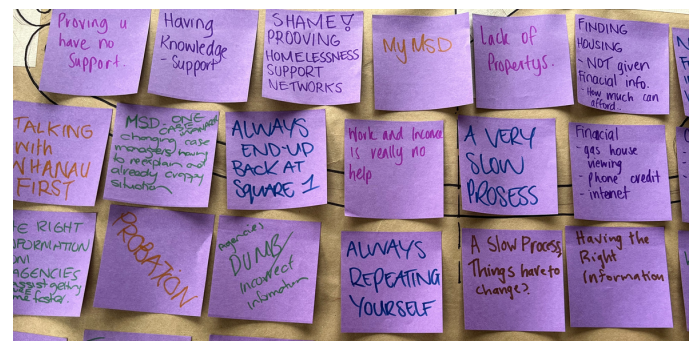 Proving u
have no
Support.
Having
Knowledge
- Support
SHAME!
PROOVING
HOMELESSNESS
SUPPORT
NETWORKS
My MSD
Lack of
Propertys.
FINDING
HOUSING
- NOT given
Finacial info.
- How much can
afford.
TALKING
with
WHANAU
FIRST
MSD - ONE
CASE MANAGER
changing case
managers/having
to reexplain an
already crappy
situation
ALWAYS
END-UP
BACK AT
SQUARE 1
Work and Income
is really no
help
A VERY
SLOW
PROSESS
Finacial
- gas house
viewing
- phone credit
- internet
E RIGHT
FORMATION
AGENCIES
assist getting
faster.
PROBATION
Agencies
DUMB/
incorrect
information
ALWAYS
REPEATING
YOURSELF
A Slow Process,
Things have to
change?
Having the
Right
Information